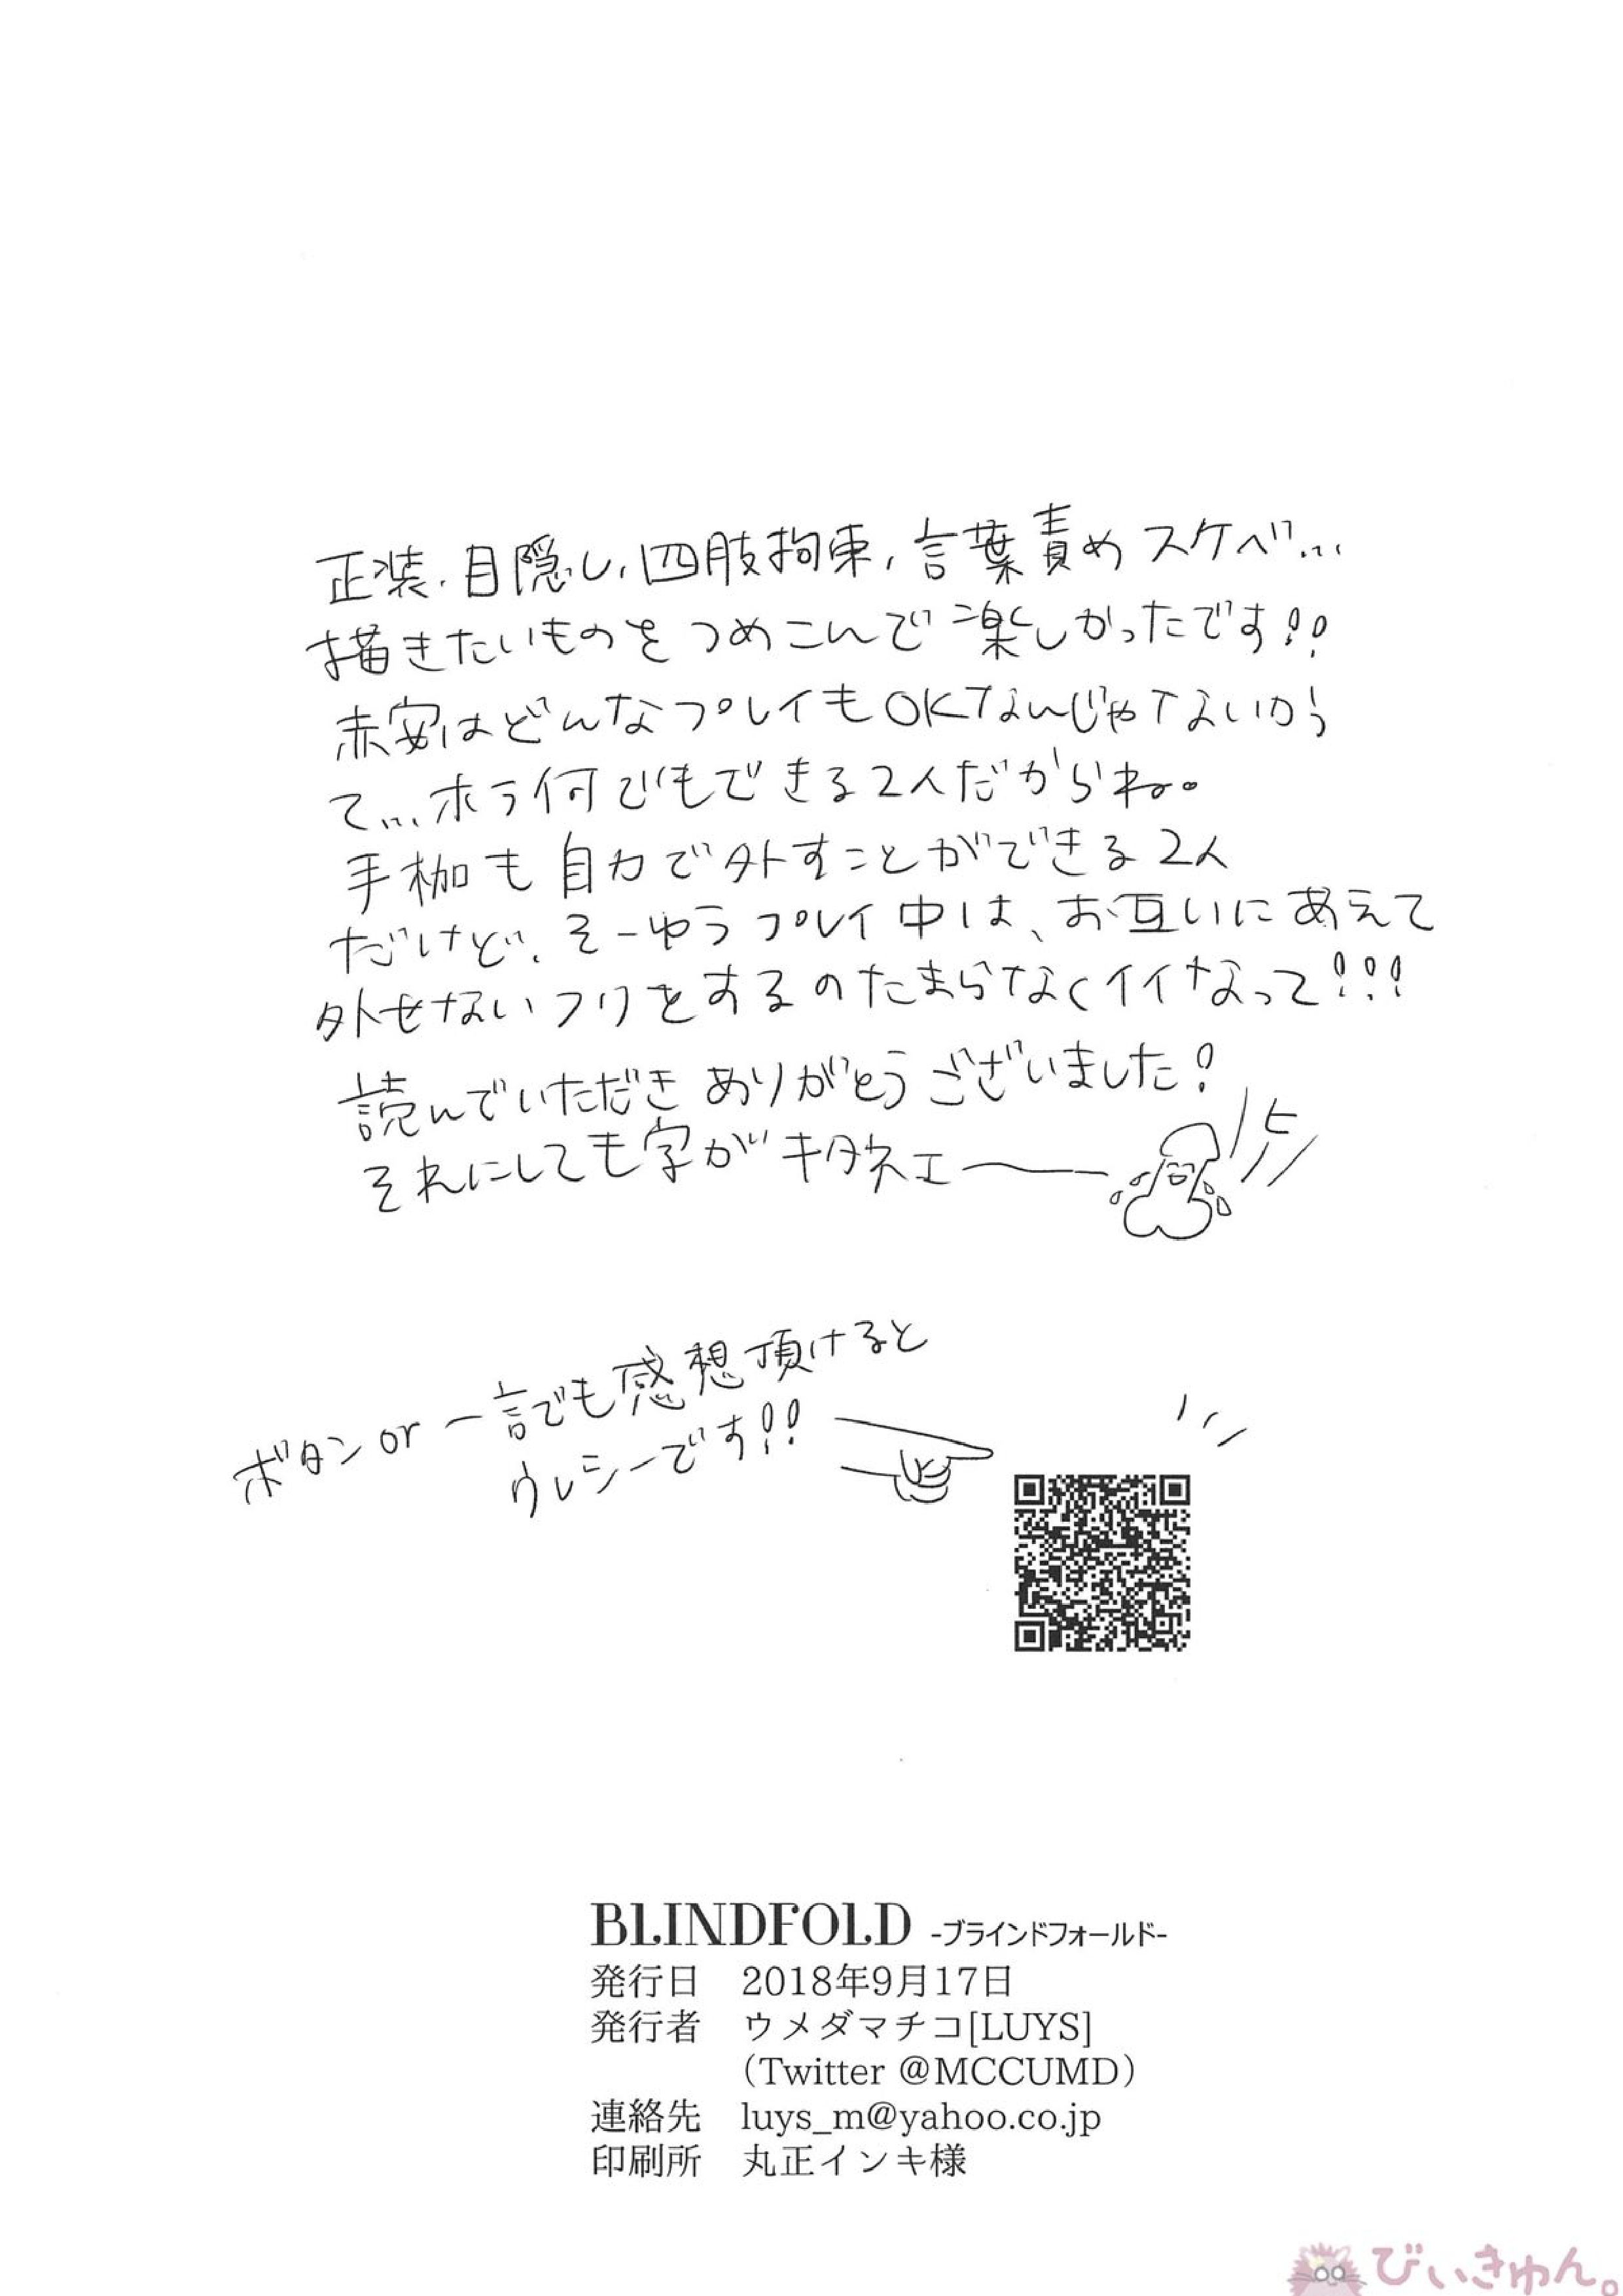 正装、目隠し、四肢拘束、言葉責めスケベ…
描きたいものをつめこんで楽しかったです!!
赤安はどんなプレイもOKなんじゃないかっ
て…ホラ何でもできる2人だからね。
手枷も自力で外すことができる2人
だけど、そーゆうプレイ中は、お互いにあえて
外せないフリをするのたまらなくイイなって!!!
読んでいただきありがとうございました!
それにしても字がキタネェー
ボタンor一言でも感想頂けると
ウレシーです!!
BLINDFOLD -ブラインドフォールド-
発行日 2018年9月17日
発行者 ウメダマチコ[LUYS]
（Twitter @MCCUMD）
連絡先 luys_m@yahoo.co.jp
印刷所 丸正インキ様
びぃきゅん。